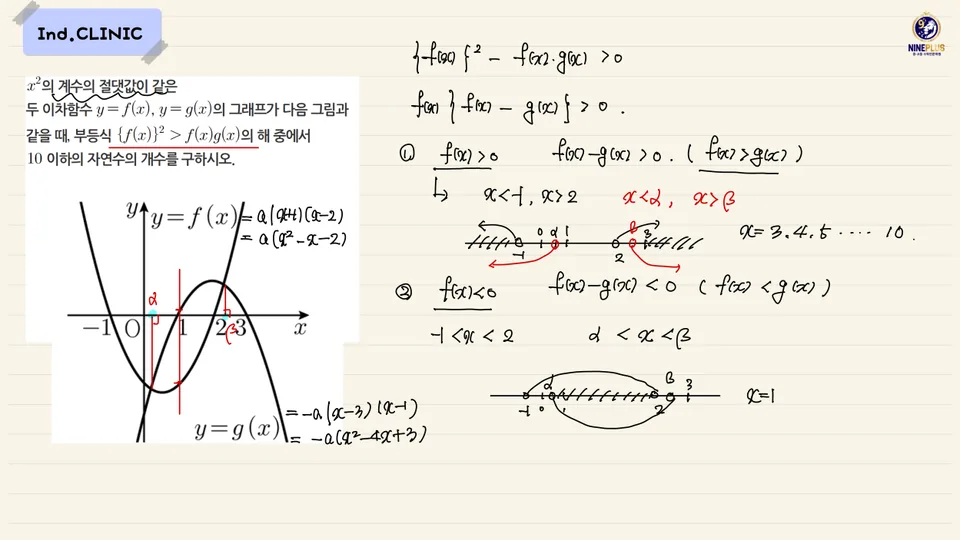 Ind.CLINIC
NINEPLUS
x²의 계수의 절댓값이 같은
두 이차함수 y=f(x), y=g(x)의 그래프가 다음 그림과
같을 때, 부등식 {f(x)}²>f(x)g(x)의 해 중에서
10 이하의 자연수의 개수를 구하시오.
y
y=f(x) = a(x+1)(x-2)
= a(x²-x-2)
α
-1 O 1 2 3 x
β
= -a(x-3)(x-1)
y=g(x) = -a(x²-4x+3)
{f(x)}² - f(x)·g(x) >0
f(x) {f(x) - g(x)} > 0 .
① f(x)>0 f(x)-g(x)>0. (f(x)>g(x))
↳ x<-1, x>2 x<α, x>β
-1 0 α 1 2 β 3
x= 3.4.5 ····· 10.
② f(x)<0 f(x)-g(x)<0 (f(x)<g(x))
-1<x<2 α<x<β
-1 0 α 1 2 β 3
x=1